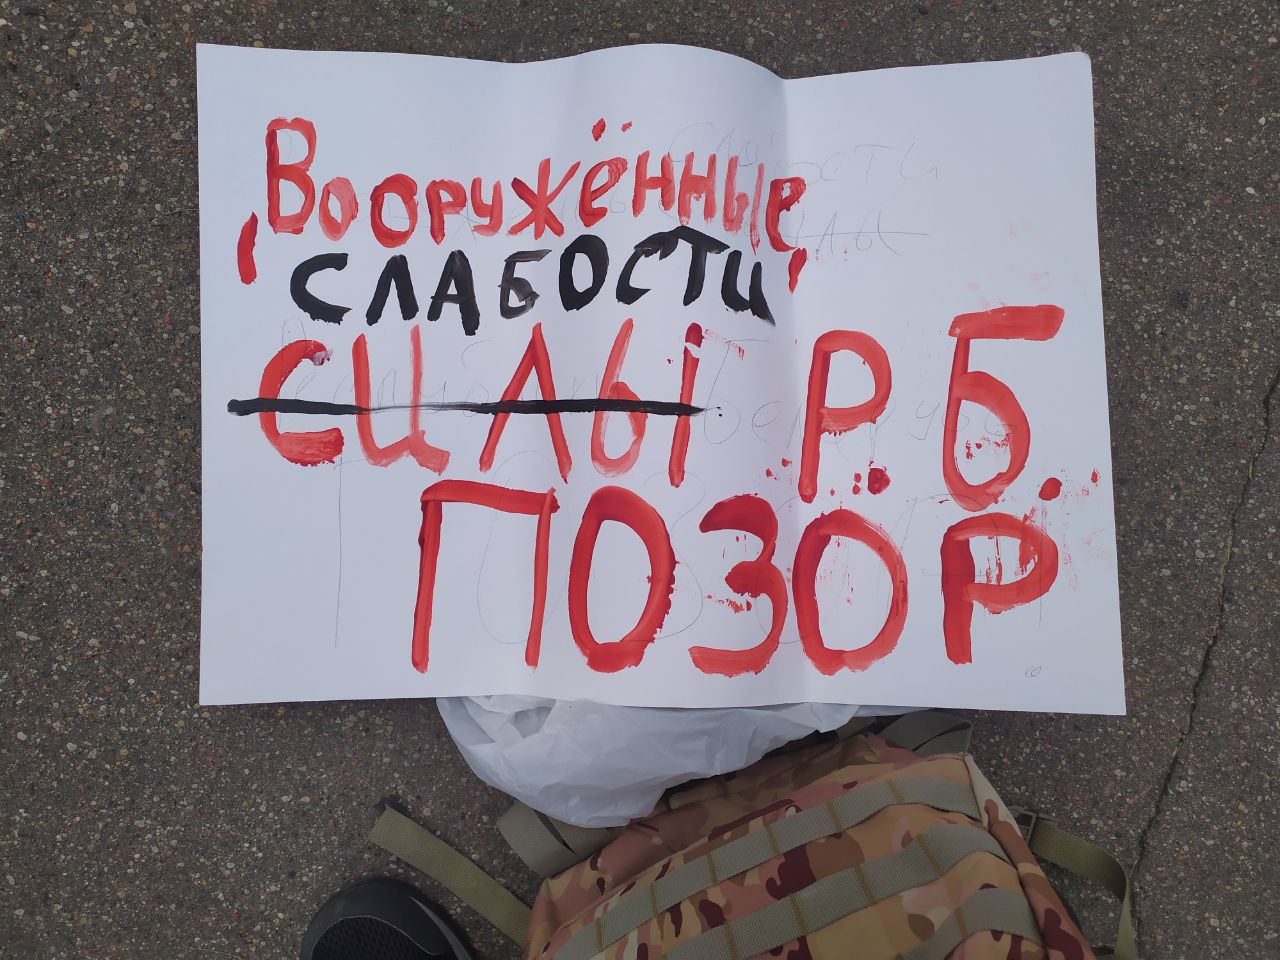 "Вооружённые"
СЛАБОСТИ
СИЛЫ Р.Б.
ПОЗОР